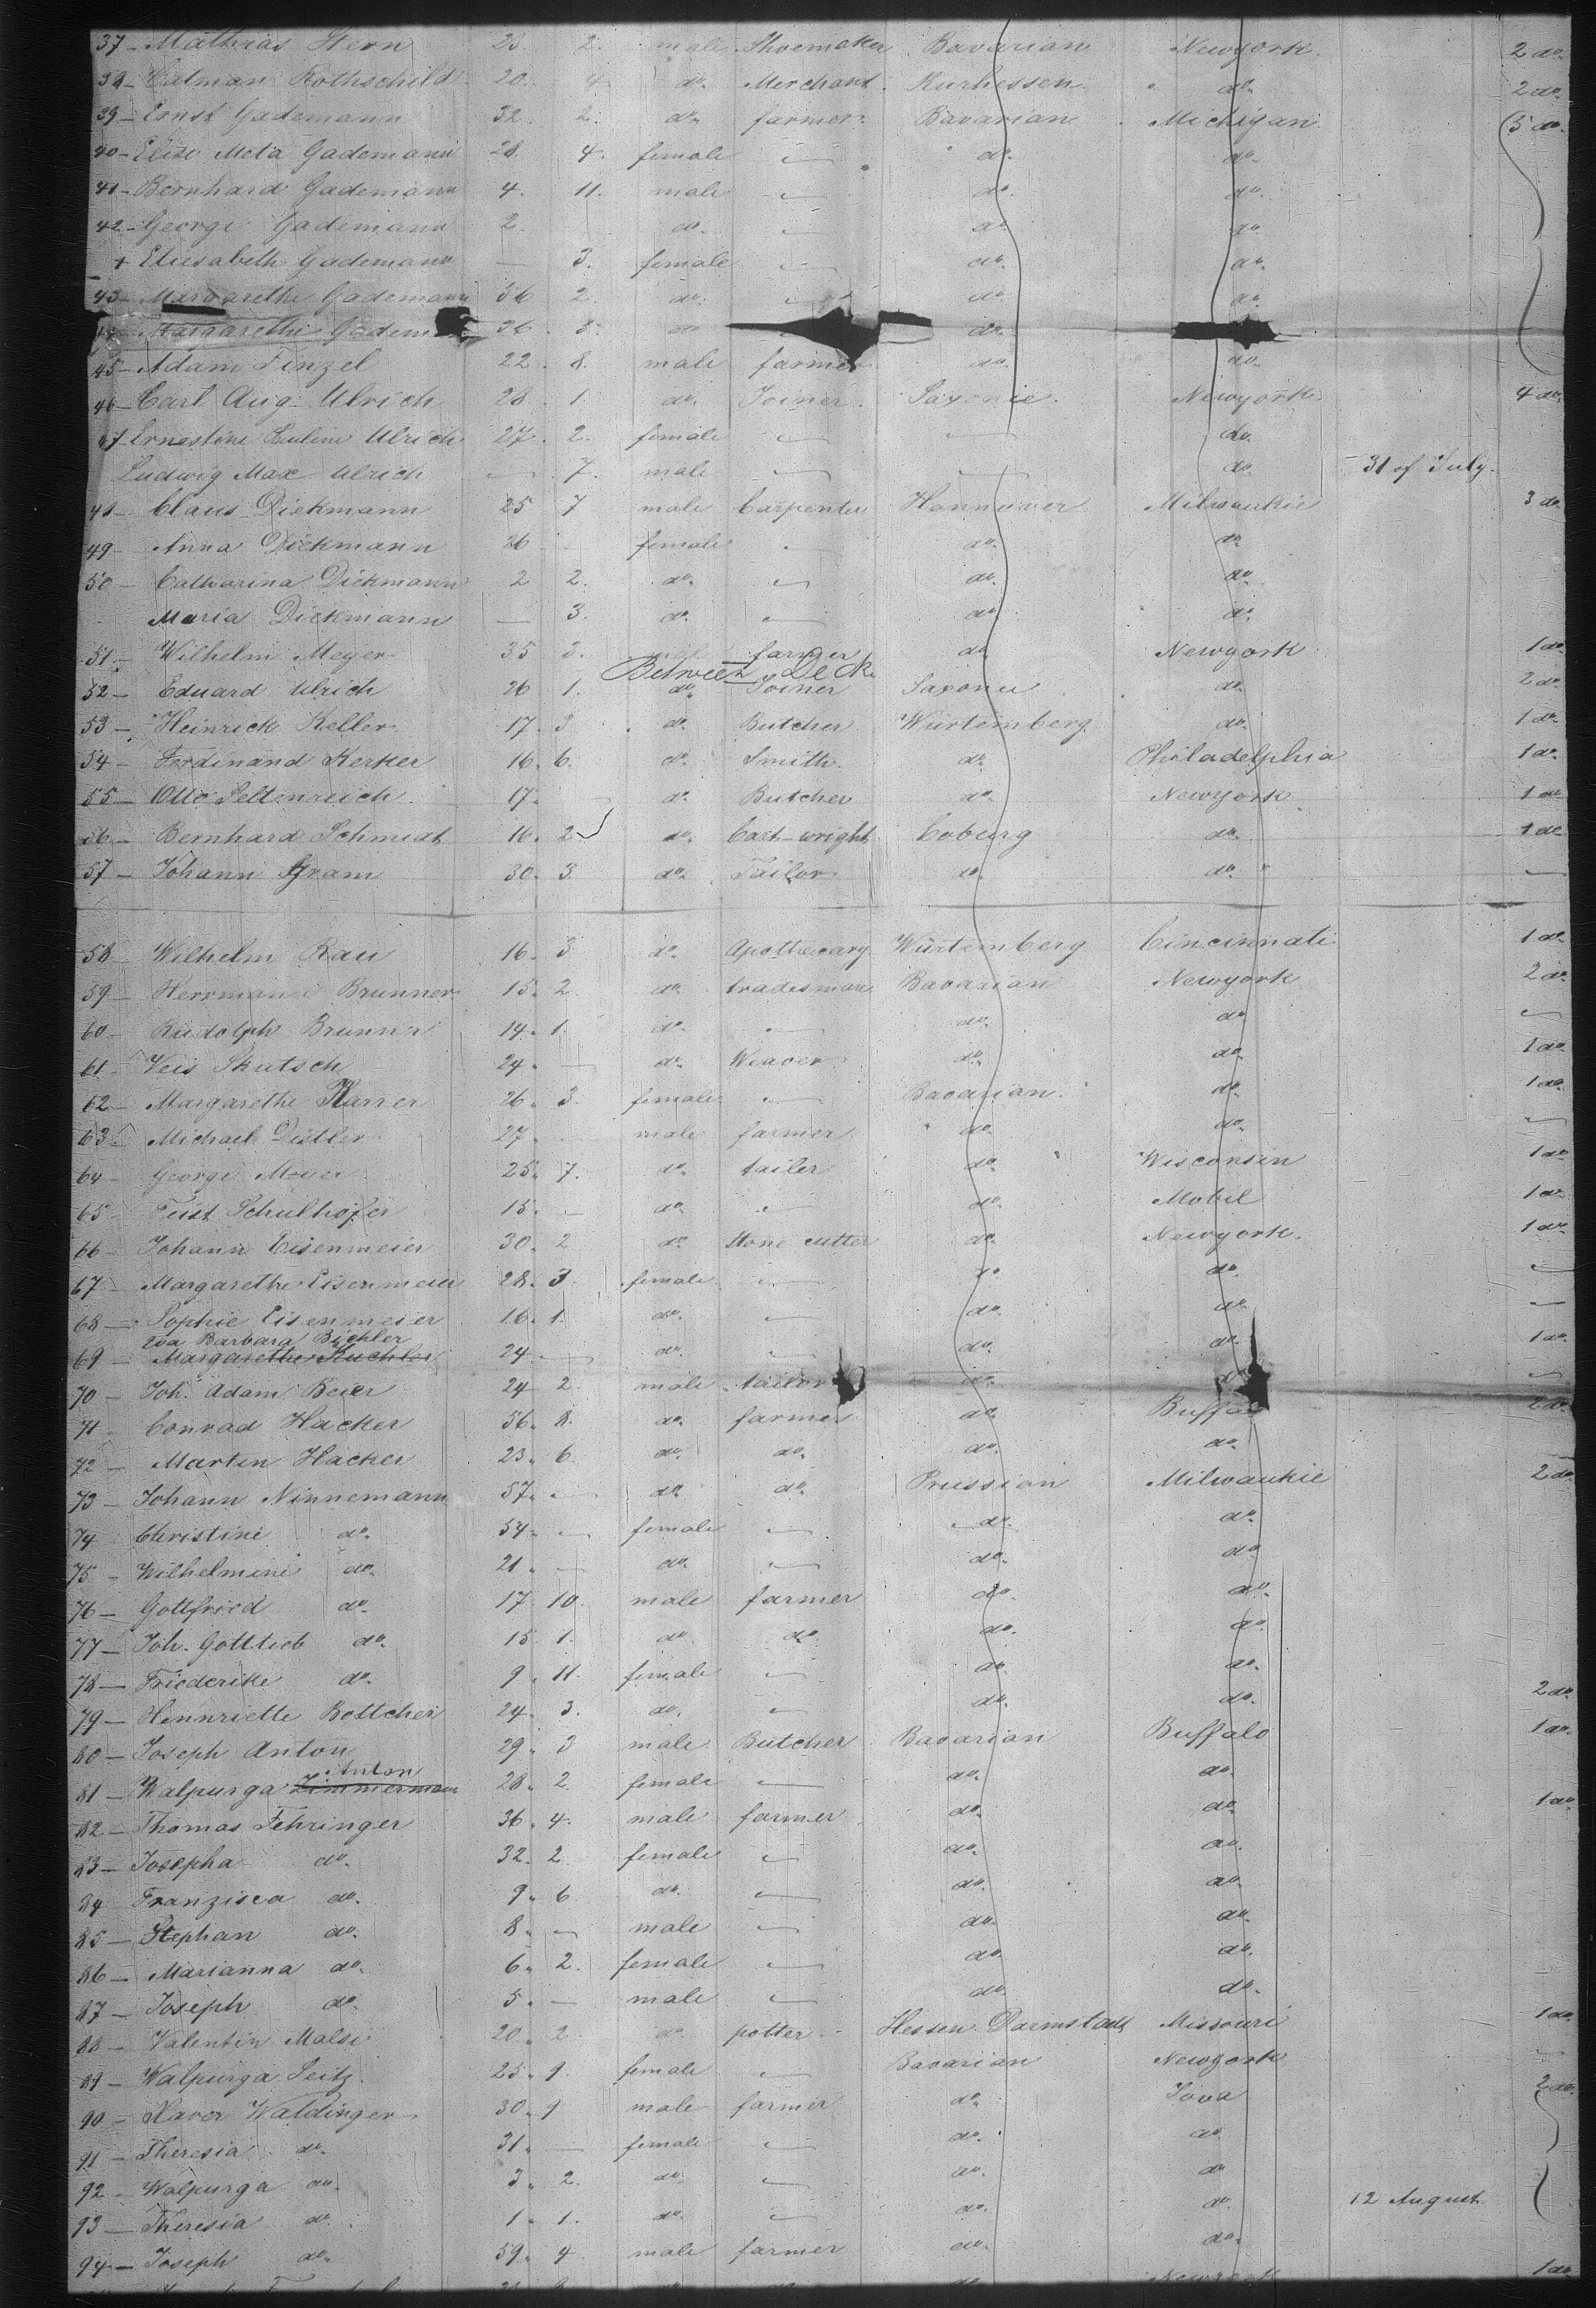 37 - Mathias Stern 23. 2. male Shoemaker Bavarian Newyork. 2 do.
38 - Calman Rothschild 20. 4. do. Merchant Kurhessen do. 2 do.
39 - Ernst Gademann 32. 2. do. farmer Bavarian Michigan. 5 do.
40 - Elise Meta Gademann 28. 4. female do. do.
41 - Bernhard Gademann 4. 11. male do. do.
42 - George Gademann 2. do. do. do.
+ Eliesabeth Gademann — 3. female do. do.
43 - Margarethe Gademann 36 2. do. do. do.
Margarethe Gadem 26. 8. do. do.
45 - Adam Finzel 22. 8. male farmer do. do.
46 - Carl Aug. Ulrich 28. 1 do. Joiner. Saxonie. Newyork. 4 do.
47 Ernestine Pauline Ulrich 27. 2. female — — do.
Ludwig Max Ulrich — 7. male — — do. 31 of July.
48 - Claus Diekmann 25 7 male Carpenter Hannover Milwaukie 3 do.
49 - Anna Diekmann 26 — female do. do.
50 - Catharina Diekmann 2 2. do. do. do.
Maria Diekmann — 3. do. do. do.
51 - Wilhelm Meyer 35 3. farmer do. Newyork 1 do.
Between Deck
52 - Eduard Ulrich 26 1. do. Joiner Saxonie do. 2 do.
53 - Heinrich Keller 17. 3 do. Butcher Würtemberg. do. 1 do.
54 - Ferdinand Kerker 16. 6. do. Smith. do. Philadelphia 1 do.
55 - Otto Seltenreich 17. — do. Butcher do. Newyork. 1 do.
56 - Bernhard Schmidt 16. 2 do. Cart-wright Coburg do. 1 do.
57 - Johann Gram 30. 3. do. Tailor do. do. —
58 - Wilhelm Rau 16. 3 do. Apothecary. Würtemberg Cincinnati 1 do.
59 - Herrmann Brunner 15. 2 do. tradesman Bavarian Newyork 2 do.
60 - Rudolph Brunner 14. 1. do. — do. do. —
61 - Veis Skutsch 24. — do. Weaver do. do. 1 do.
62 - Margarethe Karrer 26. 3. female. — Bavarian. do. 1 do.
63 - Michael Distler 27. male farmer do. do. —
64 - George Meyer 25. 7. do. tailer do. Wisconsin 1 do.
65 - Feist Schulhofer 15. — do. — do. Mobil 1 do.
66 - Johann Eisenmeier 30. 2 do. stone cutter do. Newyork. 1 do.
67 - Margarethe Eisenmeier 28. 3. female — do. do. —
68 - Sophie Eisenmeier 16. 1. do. — do. do. —
Eva Barbara Büchler
69 - Margarethe Kuchler 24 — do. — do. do. 1 do.
70 - Joh. Adam Beier 24 2. male tailor do. —
71 - Conrad Hacker 56. 8. do. farmer do. Buffalo 2 do.
72 - Martin Hacker 23. 6. do. do. do. do.
73 - Johann Ninnemann 57. — do. do. Prussian Milwaukie 2 do.
74 Christine do. 54. — female — do. do.
75 - Wilhelmine do. 21. — do. — do. do.
76 - Gottfried do. 17 10. male farmer do. do.
77 - Joh. Gottlieb do. 15 1. do. do. do. do.
78 - Friederike do. 9. 11. female — do. do.
79 - Hennriette Bottcher 24. 3. do. — do. do. 2 do.
80 - Joseph Anton 29. 3 male Butcher Bavarian Buffalo 1 do.
Anton
81 - Walpurga Zimmermann 28. 2. female — do. do.
82 - Thomas Fehringer 36. 4. male farmer do. do. 1 do.
83 - Josepha do. 32. 2. female — do. do.
84 Franzisca do. 9. 6 do. — do. do.
85 - Stephan do. 8. — male — do. do.
86 - Marianna do. 6. 2. female — do. do.
87 - Joseph do. 5. — male — do. do.
88 - Valentin Malsi 20. 2. do. potter. Hessen Darmstadt Missouri 1 do.
89 - Walpurga Seitz. 25. 9. female — Bavarian Newyork —
90 - Xaver Waldinger 30. 9 male farmer do. Iova 2 do.
91 - Theresia do. 31. — female — do. do.
92 - Walpurga do. 3. 2. do. — do. do.
93 - Theresia do. 1. 1. do. — do. do. 12 August.
94 - Joseph do. 59. 4. male farmer do. do.
Newyork 1 do.